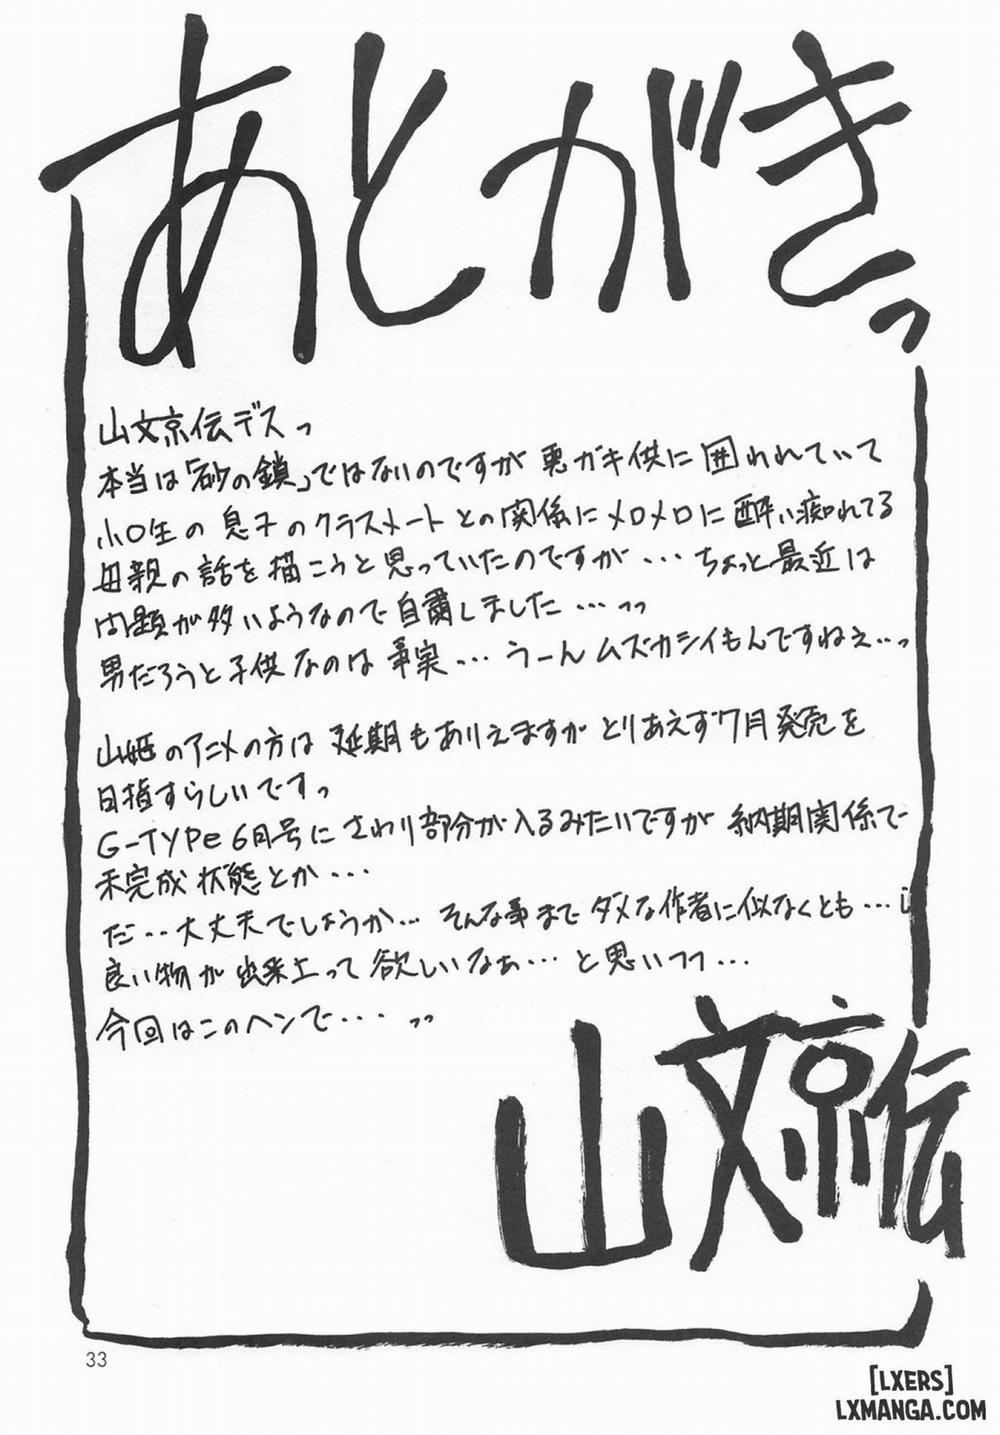 あとがきっ
山文京伝デスっ
本当は「砂の鎖」ではないのですが悪ガキ供に囲われていて
小〇生の息子のクラスメートとの関係にメロメロに酔い痴れてる
母親の話を描こうと思っていたのですが…ちょっと最近は
問題が多いようなので自粛しました…っっ
男だろうと子供なのは事実…うーんムズカシイもんですねぇ…っ
山姫のアニメの方は延期もありえますがとりあえず7月発売を
目指すらしいですっ
G-TYPe6月号にさわり部分が入るみたいですが納期関係で
未完成状態とか…
だ…大丈夫でしょうか…そんな事までダメな作者に似なくとも…
良い物が出来上って欲しいなぁ…と思いつつ…
今回はこのヘンで…っっ
山文京伝
33
[LXERS]
LXMANGA.COM